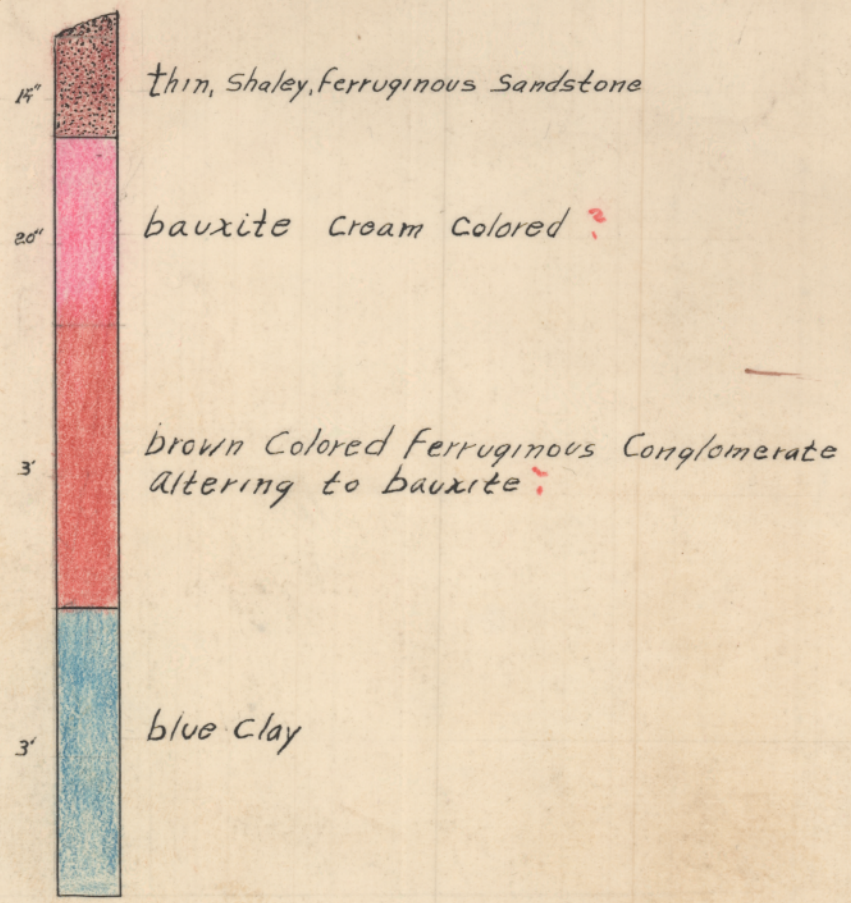 thin, Shaley, Ferruginous Sandstone
20"
bauxite Cream Colored ?
3'
brown Colored Ferruginous Conglomerate
altering to bauxite ?
3'
blue Clay